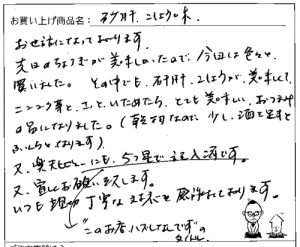 お買い上げ商品名: 砂肝 こしょう味
お世話になっております。
先日のぎょうざが美味しかったので今回は色々と
買いました。その中でも、砂肝こしょうが、美味して、
ニンニク芽と、さっといためたら、とても美味しい、おつまみ
の品になりました。(乾物なので少し、酒を足すと
ふっくらとなります)
又、楽天レビューにも、5つ星で記入済です。
又、宜しくお願い致します。
いつも 丁寧な に 感謝しております。
"このお店ハスしなんです"の